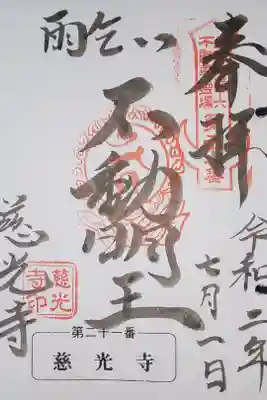 奉拝
令和二年
七月一日
雨乞い
不動明王
慈光寺
慈光
寺印
第二十一番
慈光寺